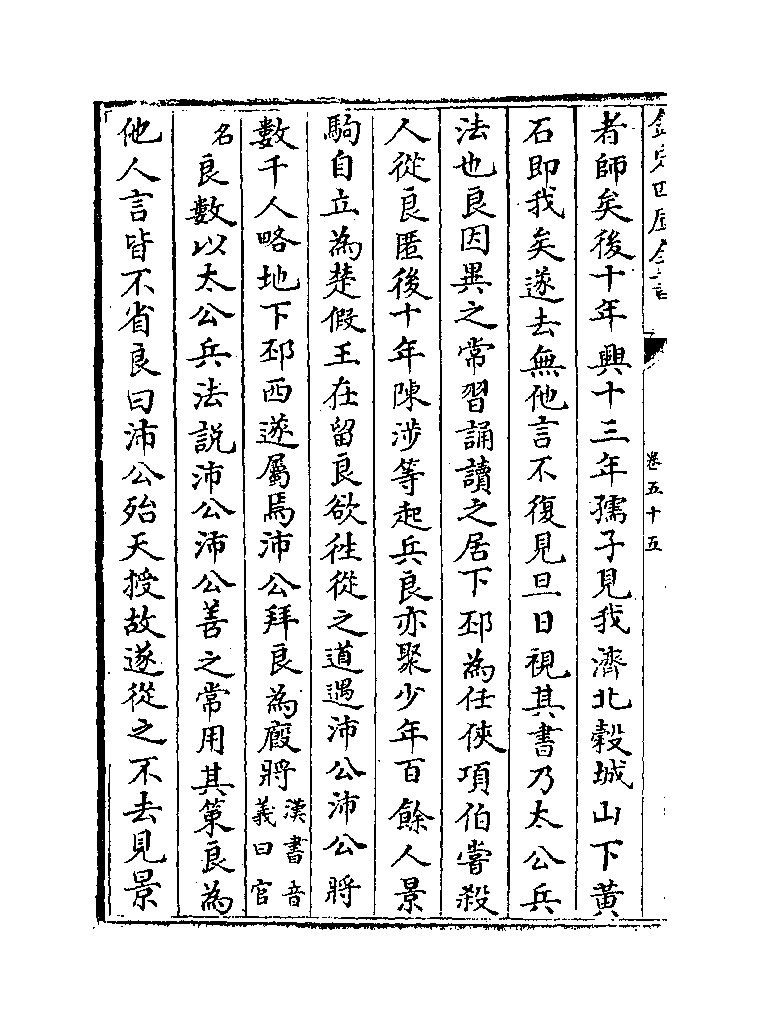 欽定四庫全書
卷五十五
者師矣後十年興十三年孺子見我濟北榖城山下黃
石即我矣遂去無他言不復見旦日視其書乃太公兵
法也良因異之常習誦讀之居下邳為任俠項伯嘗殺
人從良匿後十年陳涉等起兵良亦聚少年百餘人景
駒自立為楚假王在留良欲徃從之道遇沛公沛公將
數千人略地下邳西遂屬焉沛公拜良為廏將漢書音義曰官
名良數以太公兵法說沛公沛公善之常用其策良為
他人言皆不省良曰沛公殆天授故遂從之不去見景